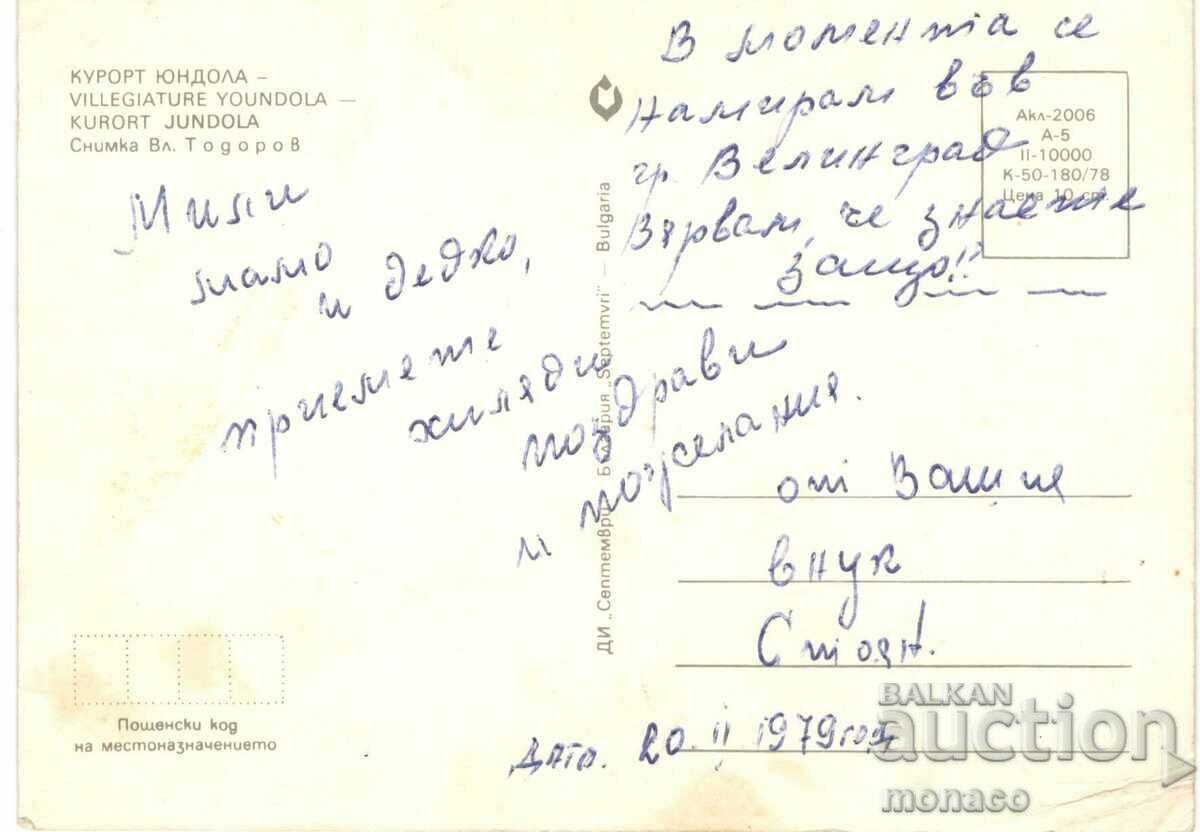 КУРОРТ ЮНДОЛА –
VILLEGIATURE YOUNDOLA —
KURORT JUNDOLA
Снимка Вл. Тодоров
Мили
мамо
и дедко,
приемете
хиляди
поздрави
и пожелания.
Пощенски код
на местоназначението
ДИ „Септември“ България „Septemvri" — Bulgaria
В момента се
намирам във
гр. Велинград
Вярвам, че знаете
защо!!
Акл-2006
А-5
II-10000
К-50-180/78
Цена 10 ст.
от Вашия
внук
Стоян.
Дата. 20 II 1979 год
BALKAN
auction
monaco